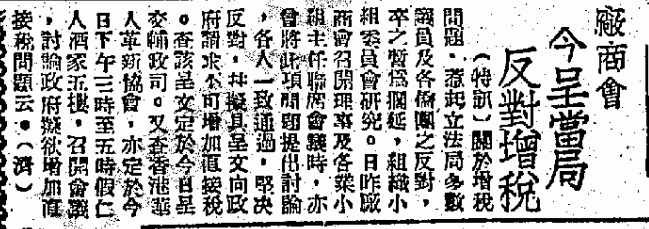 廠商會
今呈當局
反對增稅
（特訊）關於增稅
問題，惹起立法局多數
議員及各僑團之反對，
卒之暫爲擱延，組織小
組委員會研究。日昨廠
商會召開理事及各業小
組主任聯席會議時，亦
會將此項問題提出討論
，各人一致通過，堅决
反對，并擬具呈文向政
府請求不可增加直接稅
。查該呈文定於今日呈
交輔政司。又查香港華
人革新協會，亦定於今
日下午三時至五時假仁
人酒家五樓，召開會議
，討論政府擬欲增加直
接稅問題云。（濟）